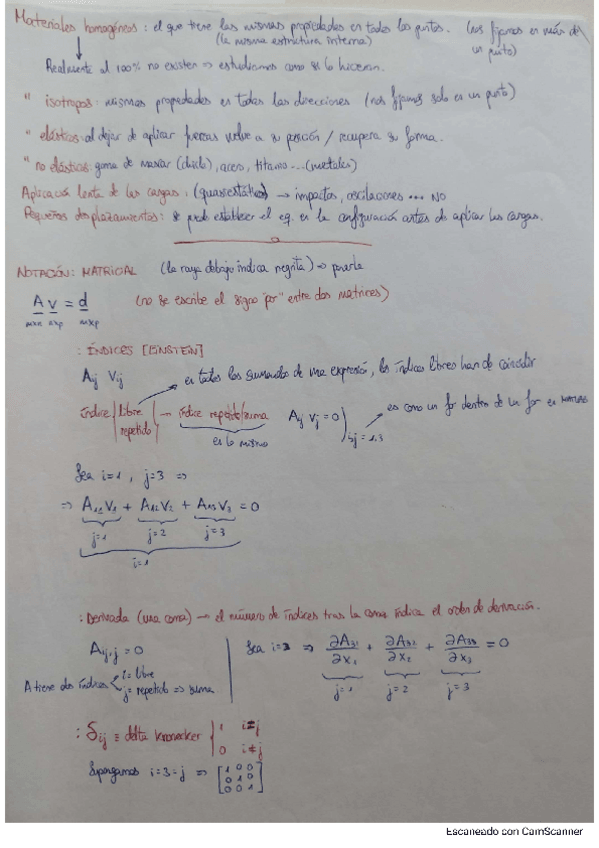 Materiales homogéneos: el que tiene las mismas propiedades en todos los puntos. (nos fijamos en más de un punto)
(la misma estructura interna)
Realmente al 100% no existen => estudiamos como si lo hicieran.
" isotropos: mismas propiedades en todas las direcciones (nos fijamos solo en un punto)
" elásticos: al dejar de aplicar fuerzas vuelve a su posición / recupera su forma.
" no elásticos: goma de mascar (chicle), acero, titanio... (metales)
Aplicación lenta de las cargas: (quasiestático) → impactos, oscilaciones ... NO
Pequeños desplazamientos: se puede establecer el eq. en la configuración antes de aplicar las cargas.
NOTACIÓN: MATRICIAL (la raya debajo indica negrita) => ponerla
A v = d (no se escribe el signo "por" entre dos matrices)
mxn nxp mxp
: ÍNDICES [EINSTEIN]
Aij Vij en todos los sumandos de una expresión, los índices libres han de coincidir
índice | libre
repetido | → índice repetido/suma Aij vj = 0 ) i,j = 1,3 es como un for dentro de un for en MATLAB
es lo mismo
Sea i=1, j=3 =>
=> A11V1 + A12V2 + A13V3 = 0
j=1 j=2 j=3
i=1
: Derivada (una coma) → el número de índices tras la coma indica el orden de derivación.
Aij,j = 0 Sea i=3 => ∂A31/∂x1 + ∂A32/∂x2 + ∂A33/∂x3 = 0
A tiene dos índices < i = libre
j = repetido => suma
j=1 j=2 j=3
: δij ≡ delta Kronecker { 1 i=j
0 i≠j
Supongamos i=3=j => [1 0 0
0 1 0
0 0 1]
Escaneado con CamScanner